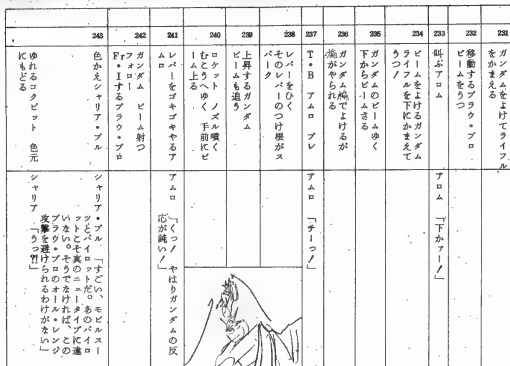 231
ガンダムをよけてライフル
をかまえる
232
移動するブラウ・ブロ
ビームをうつ
233
叫ぶアムロ
アムロ 「下かァー!」
234
ビームをよけるガンダム
ライフルを下にかまえて
うつ!
235
ガンダムのビームゆく
下からビームさる
236
ガンダム
でよけるが
がやられる
237
T・B アムロ ブレ
アムロ 「チーっ!」
238
レバーをひく
そのレバーのつけ根がス
パーク
239
上昇するガンダム
ビームも追う
240
ロケット ノズル噴く
むこうへゆく 手前にビ
ーム上る
241
レバーをゴキゴキやるア
ムロ
アムロ 「くっ! やはりガンダムの反
応が鈍い!」
242
ガンダム ビーム射つ
フォロー
Fr・Iするブラウ・ブロ
243
色かえシャリア・ブル
シャリア・ブル 「すごい、モビルスー
ツとパイロットだ。あのパイロ
ットこそ真のニュータイプに違
いない。そうでなければ、この
ブラウ・ブロのオール・レンジ
攻撃を避けられるわけがない」
ゆれるコクピット 色元
にもどる
シャリア 「うっ?!」